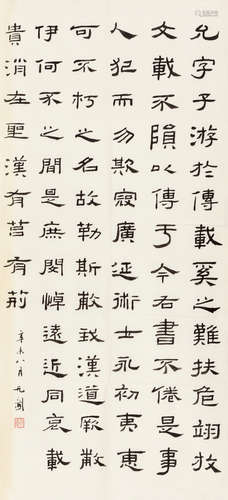 允字子游於傳載奚之難扶危翊放
文載不隕以傳于今右書不倦是事
人犯而勿欺寂廣延術士永初夷惠
可不朽之名故勒斯敝我漢道厥敝
伊何不之間是庶閔悼遠近同哀載
貴消在聖漢有莒有荊
辛未八月